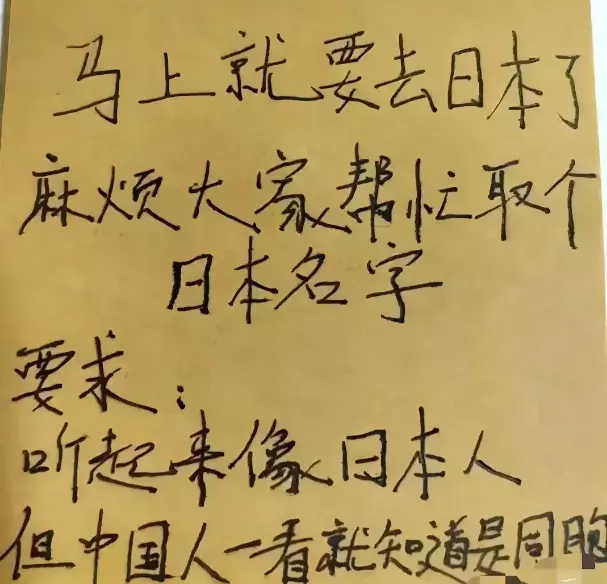 马上就要去日本了
麻烦大家帮忙取个
日本名字
要求：
听起来像日本人
但中国人一看就知道是同胞